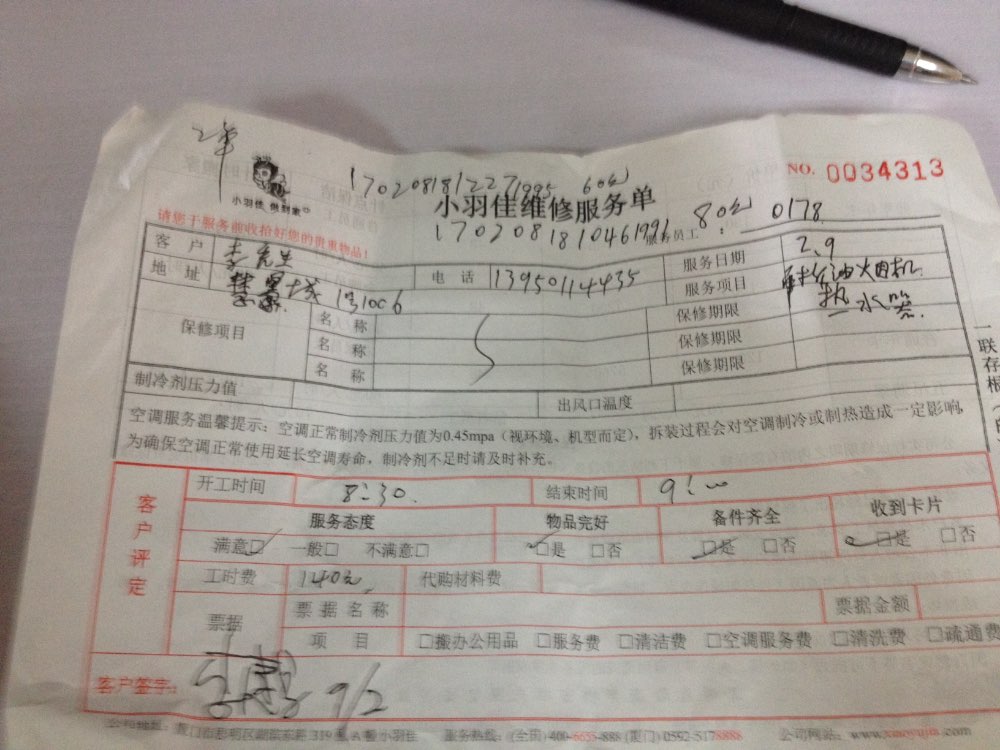 2单
小羽佳 做到家
NO. 0034313
17020818122271995 60元
小羽佳维修服务单
1702081810461996 80元 0178
服务员工:
请您于服务前收拾好您的贵重物品!
客户 李先生 电话 13950114435 服务日期 2.9
地址 城 1号1006 服务项目 油烟机
热水器
保修项目 名称 保修期限
名称 保修期限
名称 保修期限
制冷剂压力值 出风口温度
空调服务温馨提示:空调正常制冷剂压力值为0.45mpa(视环境、机型而定),拆装过程会对空调制冷或制热造成一定影响,
为确保空调正常使用延长空调寿命,制冷剂不足时请及时补充。
一联存根
客户评定
开工时间 8:30. 结束时间 9:00
服务态度 物品完好 备件齐全 收到卡片
满意□ 一般□ 不满意□ □是 □否 □是 □否 □是 □否
工时费 140元 代购材料费
票据 票据名称 票据金额
项目 □搬办公用品 □服务费 □清洁费 □空调服务费 □清洗费 □疏通费
客户签字: 9/2
公司地址: 厦门市思明区湖滨东路319号A 小羽佳 服务热线:(全国)400-6655-888 (厦门)0592-5178888 公司网站:www.xiaoyujia.com